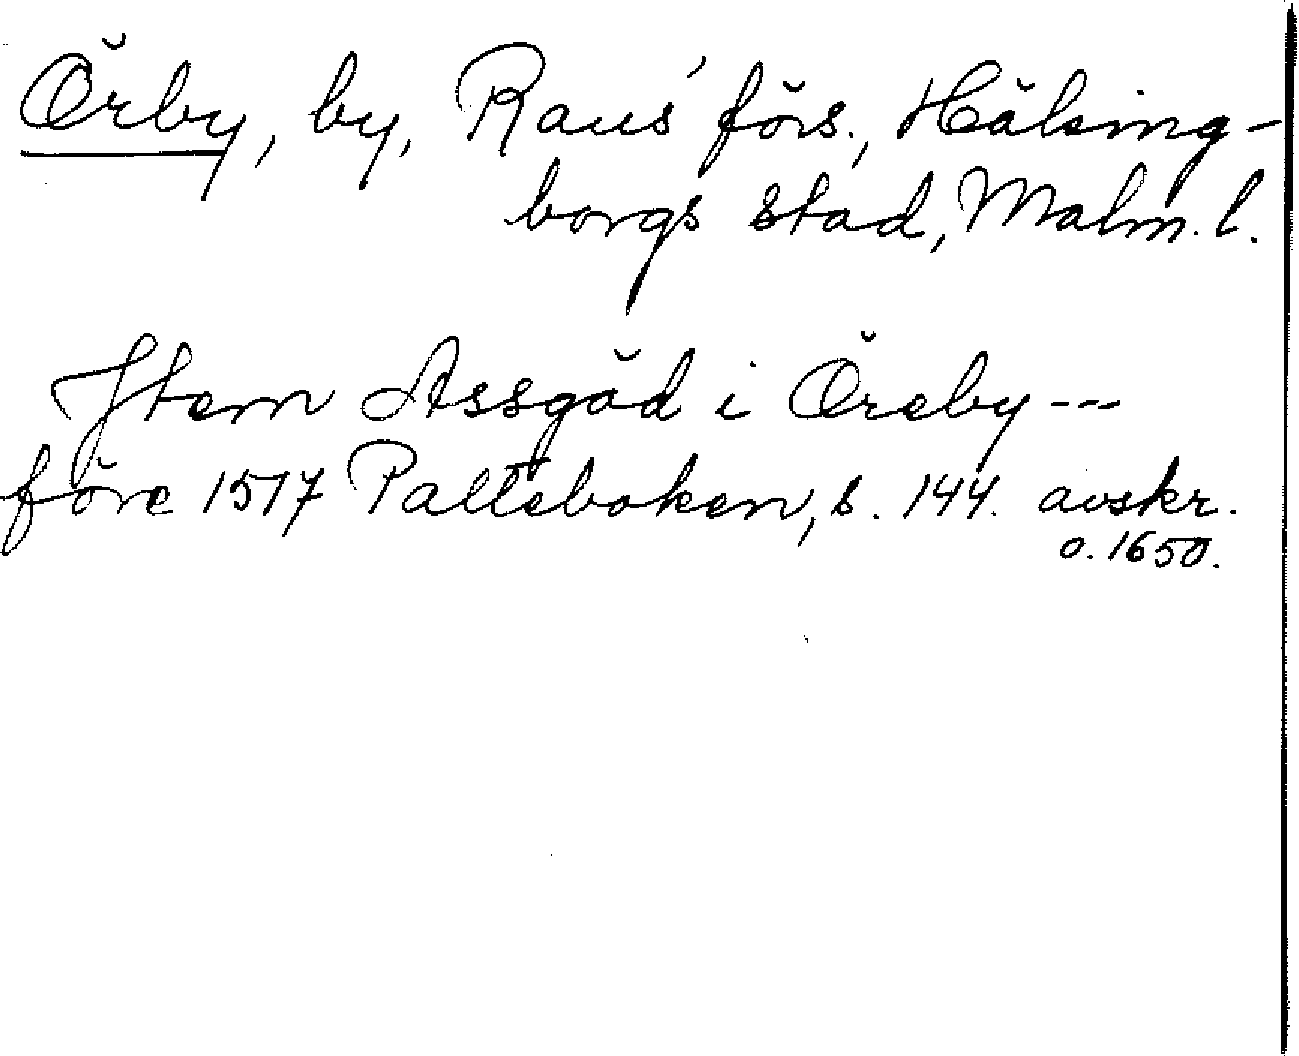 Örby, by, Raus' förs., Hälsing-
borgs stad, Malm. l.
Item Assgöd i Öreby ---
före 1517 Palteboken, s. 144. avskr.
o. 1650.